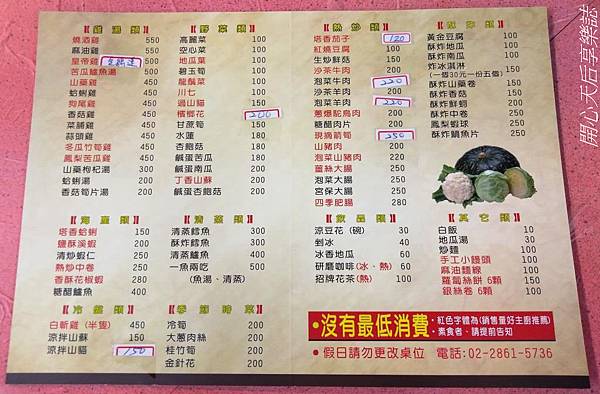 【雞湯類】
燒酒雞 550
麻油雞 500
皇帝雞
苦瓜鱸魚湯 500
山藥雞 450
蛤蜊雞 450
狗尾雞 450
香菇雞 450
菜脯雞 450
蒜頭雞 450
冬瓜竹筍雞 450
鳳梨苦瓜雞 450
山藥枸杞湯 300
蛤蜊湯 200
香菇筍片湯 200
【野菜類】
高麗菜 100
空心菜 100
地瓜葉 100
碧玉筍 100
龍鬚菜 100
川七 100
過山貓 100
檳榔花 200
甘蔗筍 150
水蓮 180
杏鮑菇 180
鹹蛋苦瓜 180
鹹蛋南瓜 180
丁香山蘇 200
鹹蛋杏鮑菇 200
【熱炒類】
塔香茄子 120
紅燒豆腐 100
生炒鮮菇 150
沙茶牛肉 200
泡菜牛肉 220
沙茶羊肉 200
泡菜羊肉 220
蔥爆鴕鳥肉 200
糖醋肉片 200
現摘箭筍 250
山豬肉 200
泡菜山豬肉 220
薑絲大腸 200
泡菜大腸 250
宮保大腸 200
四季肥腸 280
黃金豆腐 100
酥炸地瓜 100
酥炸南瓜 100
炸冰淇淋 150
(一個30元一份五個)
酥炸山藥卷 200
酥炸香菇 200
酥炸鮮蚵 200
酥炸中卷 200
鳳梨蝦球 200
酥炸鯛魚片 200
【海產類】
塔香蛤蜊 150
鹽酥溪蝦 200
清炒蝦仁 200
熱炒中卷 200
香酥花椒蝦 280
糖醋鱸魚 400
【清蒸類】
清蒸鱈魚 300
酥炸鱈魚 300
清蒸鱸魚 400
一魚兩吃 500
(魚湯、清蒸)
【飲品類】
涼豆花(碗) 30
剉冰 40
冰香地瓜 60
研磨咖啡(冰、熱) 60
招牌花茶(熱) 100
【其它類】
白飯 10
地瓜湯 30
炒麵 100
手工小饅頭 100
麻油麵線 100
蘿蔔絲餅 6顆 150
銀絲卷 6顆 100
【冷盤類】
白斬雞(半隻) 450
涼拌山蘇 150
涼拌山貓 150
冷筍 200
大蔥肉絲 200
桂竹筍 200
金針花 200
•沒有最低消費 •紅色字體為(銷售量好主廚推薦)
•素食者、請提前告知
•假日請勿更改桌位 電話:02-2861-5736
開心天后享樂誌